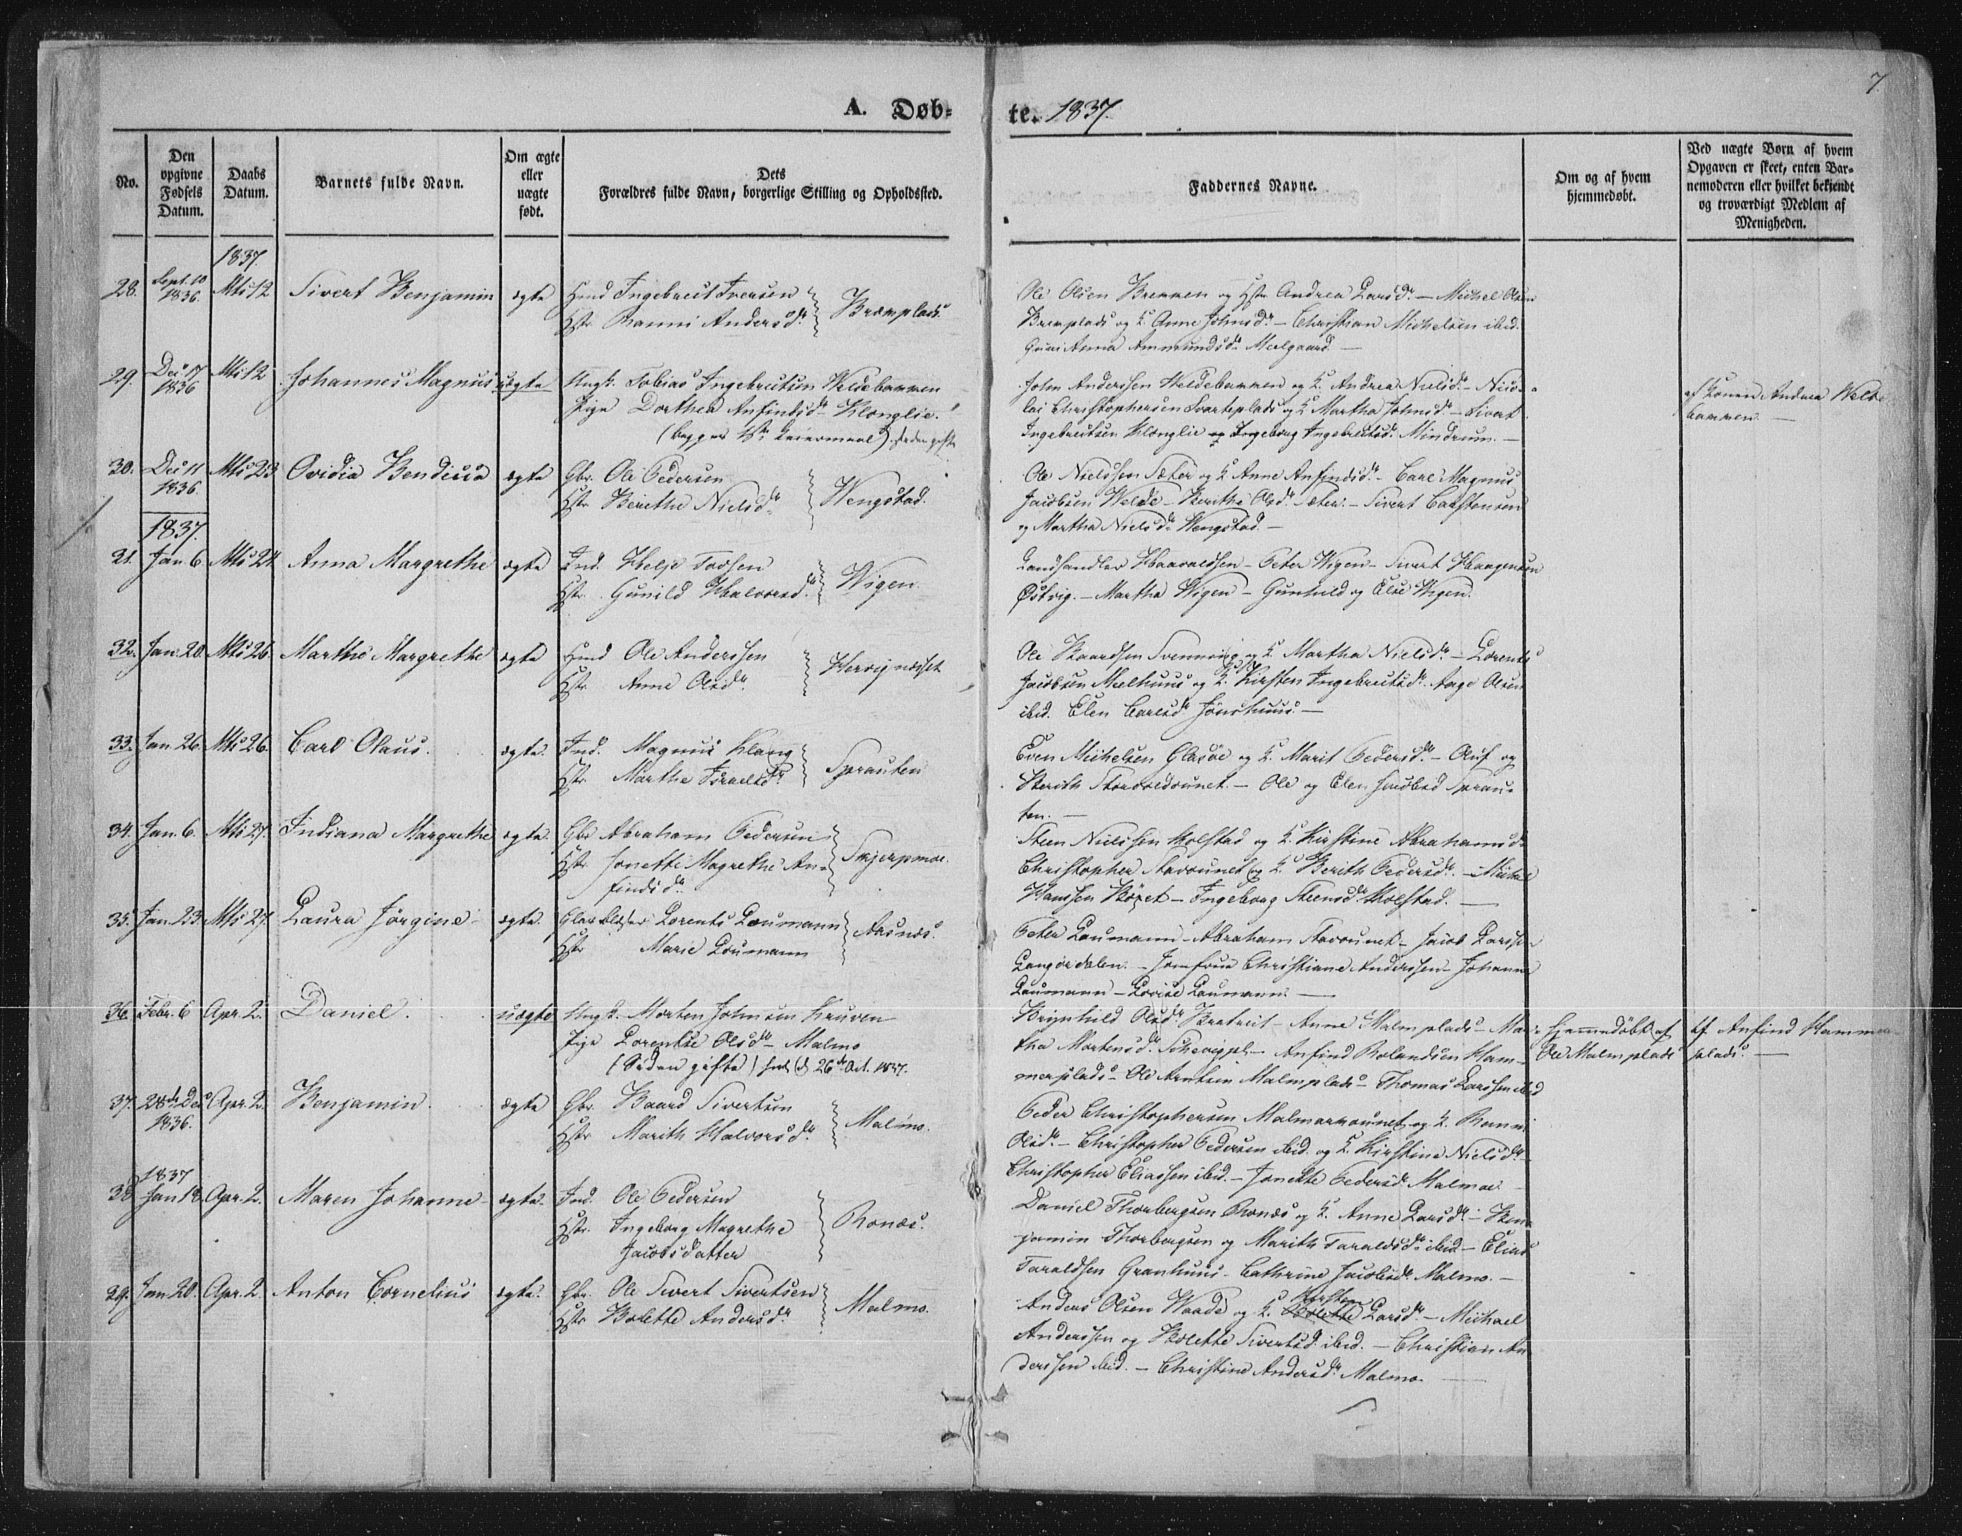 7
A. Døb-
te. 1837.
No.
Den
opgivne
Fødsels
Datum.
Daabs
Datum.
Barnets fulde Navn.
Om ægte
eller
uægte
født.
Dets
Forældres fulde Navn, borgerlige Stilling og Opholdssted.
Faddernes Navne.
Om og af hvem
hjemmedøbt.
Ved uægte Børn af hvem
Opgaven er skeet, enten Bar-
nemoderen eller hvilket bekjendt
og troværdigt Medlem af
Menigheden.
1837.
28. Sept. 10 1836. Mts 12 Sivert Benjamin ægte Hmd Ingebret Iversen
Hstr. Ranni Andersdr. Bremplads.
Ole Olsen Bremmen og Hstr Andrea Larsdr. — Michel Olsen
Bremplads og K. Anne Johnsdr. — Christian Michelsen ibid.
Anna Ammundsdr. Melgaard. —
29. Dec. 17 1836 Mts 12 Johannes Magnus uægte Ungk. Tobias Ingebretsen Weldebammen
Pige Dorthea Anfindsdr. Klonglie.
(begges 1ste Leiermaal) siden gifte
John Anderssen Weldebammen og K. Andrea Nielsdr. — Nico-
lai Christophersen Svarteplads og K. Martha Johnsdr. — Sivert
Ingebretsen Klonglie og Ingeborg Ingebretsdr. Mindrum. —
af Konen Andrea Welde-
bammen. —
30. Dec. 11 1836. Mts 23 Ovidia Bendicta ægte Gbr. Ole Pedersen
Hstr. Berethe Nielsdr. Wengstad.
Ole Nielssen Sæter og K. Anne Anfindsdr. — Carl Magnus
Jacobsen Welde — Berithe Olsdr. Sæter. — Sivert Carstensen
og Martha Nielsdr. Wengstad. —
1837.
31. Jan. 6 Mts 24. Anna Margrethe ægte Ind. Helje Torsen
Hstr. Gunild Halvorsdr. Wigen.
Landhandler Haavaldsen — Peter Wigen — Sivert Haagensen
Østvig. — Martha Wigen — Gunhild og Else Wigen.
32. Jan. 20. Mts 26 Marthe Margrethe ægte Hmd Ole Anderssen
Hstr. Anne Olsdr. Hervignæsset
Ole Baardsen Svenning og K. Martha Nielsdr. — Lorents
Jacobsen Melhuus og K. Kirsten Ingebretsdr. Aage Olsen
ibid. Elen Carlsdr. Jønshuus. —
33. Jan. 26. Mts 26. Carl Olaus. ægte. Ind. Magnus Klang
Hstr. Marthe Israelsdr. Sprauten
Even Michelsen Glasøe og K. Marit Pedersdr. — Oluf og
Berith — Ole og Elen Jacobsd Sprau-
ten. —
34. Jan. 6. Mts 27. Indiana Margrethe ægte. Gbr Abraham Pedersen
Hstr. Jonette Magrethe An-
findsdr. Skjerpmoe.
Steen Nielssen Holstad og K. Kirstine Abrahamsdr.
Christopher Aavounet og K. Berith Pedersdr. — Michel
Hanssen — Ingeborg Steensdr. Holstad. —
35. Jan. 23. Mts 27. Laura Jørgine ægte. Lorents Laumann
Hstr. Marie Laumann Aasnæs.
Peter Laumann — Abraham Aavounet — Jacob Larssen
Langørdalen. — Jomfrue Christiane Anderssen — Johanne
Laumann — Lovise Laumann. —
36. Febr. 6 Apr. 2. Daniel. uægte Ungk. Morten Johnsen Kruven
Pige Lorentse Olsdr. — Malmo
(Siden gifte) 26de Oct. 1837.
Brynhild Olsdr. Bratreit — Anne Malmplads — Mar-
tha Mortensdr. — Anfind Rolandsen Ham-
mersplads — Ole Arntsen Malmplads — Thomas Larssen ibid
Hjemmedøbt af
Ole Malmplads
af Anfind Hammer-
plads. —
37. 28de Dec. 1836. Apr. 2. Benjamin. ægte Gbr. Baard Sivertsen
Hstr Marith Halvorsdr. Malmo.
Peder Christophersen Malmaraunet og K. Ranni
Olsdr. — Christopher Pedersen ibid. og K. Kirstine Nielsdr.
Christopher Eliassen ibid. — Jonette Pedersdr. Malmoe.
1837
38 Jan 18. Apr. 2. Maren Johanne ægte. Ind. Ole Pedersen
Hstr. Ingeborg Magrethe
Jacobsdatter Ronæs.
Daniel Thorbergsen Ronæs og K. Anne Larsdr. — Ben-
jamin Thorbergsen og Marith Taraldsdr. ibid. — Elias
Taraldsen Granhuus — Cathrine Jacobsdr. Malmo. —
39. Jan. 20. Apr. 2. Anton Cornelius ægte. Gbr. Ole Sivert Sivertsen
Hstr. Bolette Andersdr. Malmo.
Kirsten
Anders Olsen Waade og K. Bolette Larsdr. — Michael
Anderssen og Bolette Sivertsd. ibid. — Christian An-
derssen ibid. — Christine Andersdr. Malmo.